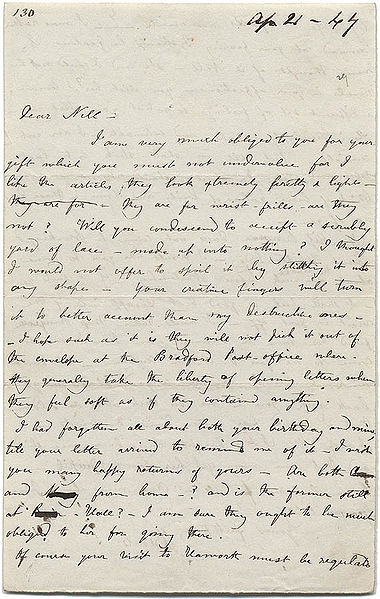 130
Ap 21 - 47
Dear Nell -
I am very much obliged to you for your
gift which you must not undervalue for I
like the articles, they look extremely pretty & light -
they are for - they are for wrist-frills - are they
not? Will you condescend to accept a scrubby
yard of lace - made up into nothing? I thought
I would not offer to spoil it by stitching it into
any shape - Your creative fingers will turn
it to better account than my destructive ones -
- I hope such as it is they will not pick it out of
the envelope at the Bradford Post-office where
they generally take the liberty of opening letters when
they feel soft as if they contained anything.
I had forgotten all about both your birthday and mine,
till your letter arrived to remind me of it - I wish
you many happy returns of yours - Are both
and from home - ? and is the former still
at Hall? - I am sure they ought to be much
obliged to her for going there.
Of course your visit to Haworth must be regulated